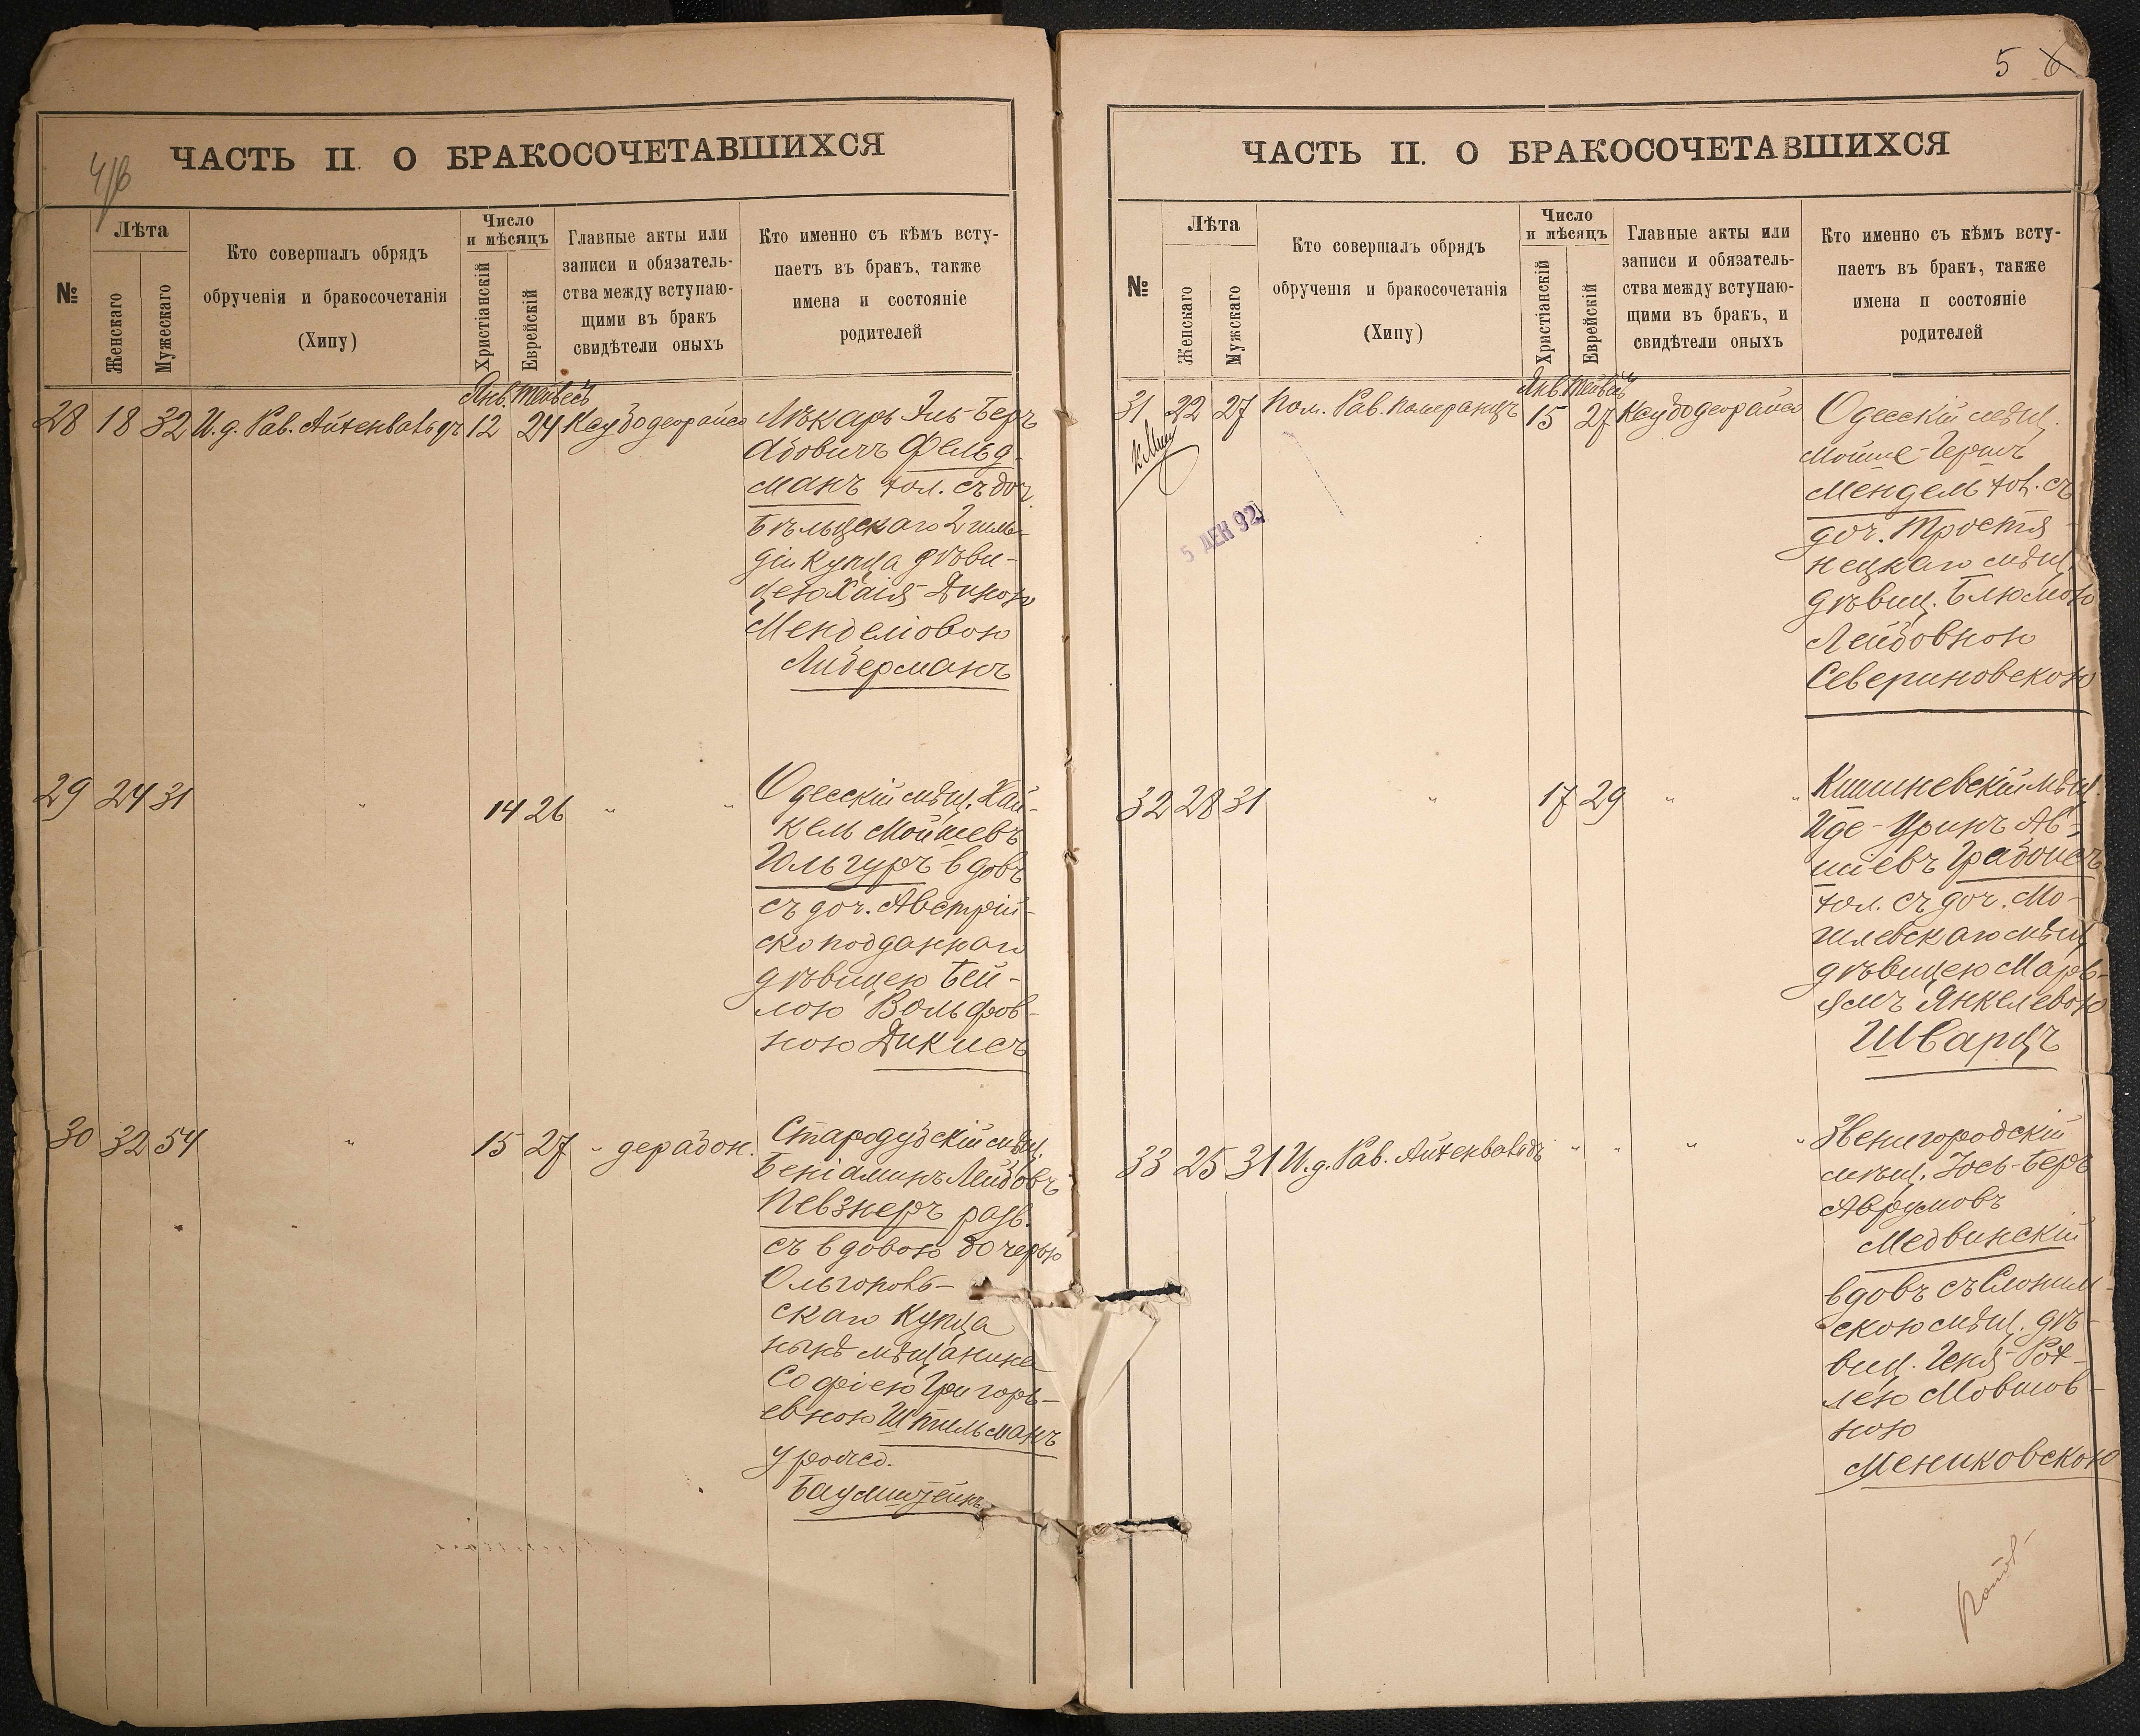 4/6
ЧАСТЬ II. О БРАКОСОЧЕТАВШИХСЯ
№
Лѣта
Женскаго
Мужескаго
Кто совершалъ обрядъ
обрученія и бракосочетанія
(Хипу)
Число
и мѣсяцъ
Христіанскій
Еврейскій
Главные акты или
записи и обязатель-
ства между вступаю-
щими въ бракъ
свидѣтели оныхъ
Кто именно съ кѣмъ всту-
паетъ въ бракъ, также
имена и состояніе
родителей
Янв. Тейвесъ
28 18 32 И.д. Рав. Айхенвальдъ 12 24 Ксубодеорайсо
Лѣкарь Эль-Беръ
Абовичъ Фельд-
манъ хол. съ доч.
Бѣльцскаго 2 гиль-
діи купца дѣви-
цею Хаія-Диною
Менделіовою
Либерманъ
29 24 31 " 14 26 " "
Одесскій мѣщ. Хай-
кель Мойшевъ
Юльгуръ вдовъ
съ доч. Австрій-
скоподданнаго
дѣвицею Бей-
лою Вольфов-
ною Дикисъ
30 32 54 " 15 27 " дерабон.
Стародубскій мѣщ.
Беніаминъ Лейбовъ
Певзнеръ разв.
съ вдовою дочерью
Ольгополь-
скаго купца
нынѣ мѣщанина
Софіею Григорь-
евною Шпильманъ
урожд.
Баумштейнъ
5 6
ЧАСТЬ II. О БРАКОСОЧЕТАВШИХСЯ
№
Лѣта
Женскаго
Мужскаго
Кто совершалъ обрядъ
обрученія и бракосочетанія
(Хипу)
Число
и мѣсяцъ
Христіанскій
Еврейскій
Главные акты или
записи и обязатель-
ства между вступаю-
щими въ бракъ, и
свидѣтели оныхъ
Кто именно съ кѣмъ всту-
паетъ въ бракъ, также
имена и состояніе
родителей
Янв. Тейвесъ
31 22 27 Пом. Рав. Померанцъ 15 27 Ксубодеорайсо
5 ДЕК 92
Одесскій мѣщ.
Мойше-Гершъ
Мендель хол. съ
доч. Тростя-
нецкаго мѣщ.
дѣвиц. Блюмою
Лейбовною
Севериновскою
32 28 31 " 17 29 " "
Кишиневскій мѣщ.
Иде-Уринъ Ав-
шіевъ Грабоисъ
хол. съ доч. Мо-
гилевскаго мѣщ.
дѣвицею Марь-
ямъ Янкелевою
Шварцъ
33 25 31 И.д. Рав. Айхенвальдъ " " " "
Звенигородскій
мѣщ. Іось-Беръ
Аврумовъ
Медвинскій
вдовъ съ Слоним-
скою мѣщ. дѣ-
виц. Геня-Рох-
лею Мовшов-
ною
Мениковскою